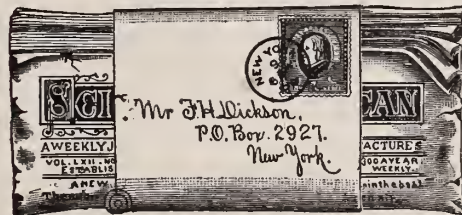 NEW YO
SCI
CAN
Mr F. H. Dickson,
P.O. Box. 2927.
New York.
A WEEKLY J
ACTURES
VOL. LXII. NO
ESTABLIS
00 A YEAR.
WEEKLY.
A NEW